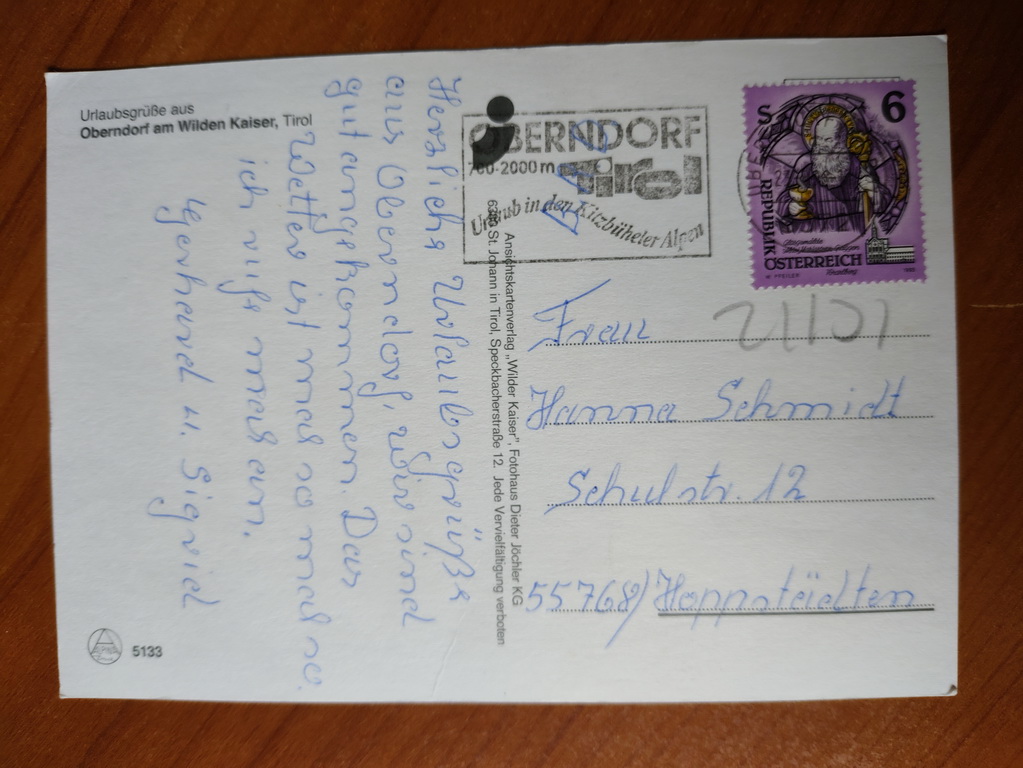 Urlaubsgrüße aus
Oberndorf am Wilden Kaiser, Tirol
Herzliche Urlaubsgrüße
aus Oberndorf, wir sind
gut angekommen. Das
Wetter ist mal so mal so.
ich ruf mal an.
Gerhard u. Sigrid
5133
Ansichtskartenverlag „Wilder Kaiser", Fotohaus Dieter Jöchler KG
6380 St. Johann in Tirol, Speckbacherstraße 12. Jede Vervielfältigung verboten
OBERNDORF
700-2000 m Tirol
Urlaub in den Kitzbüheler Alpen
S 6
REPUBLIK
ÖSTERREICH
Frau
Hanna Schmidt
Schulstr. 12
55768) Hoppstädten